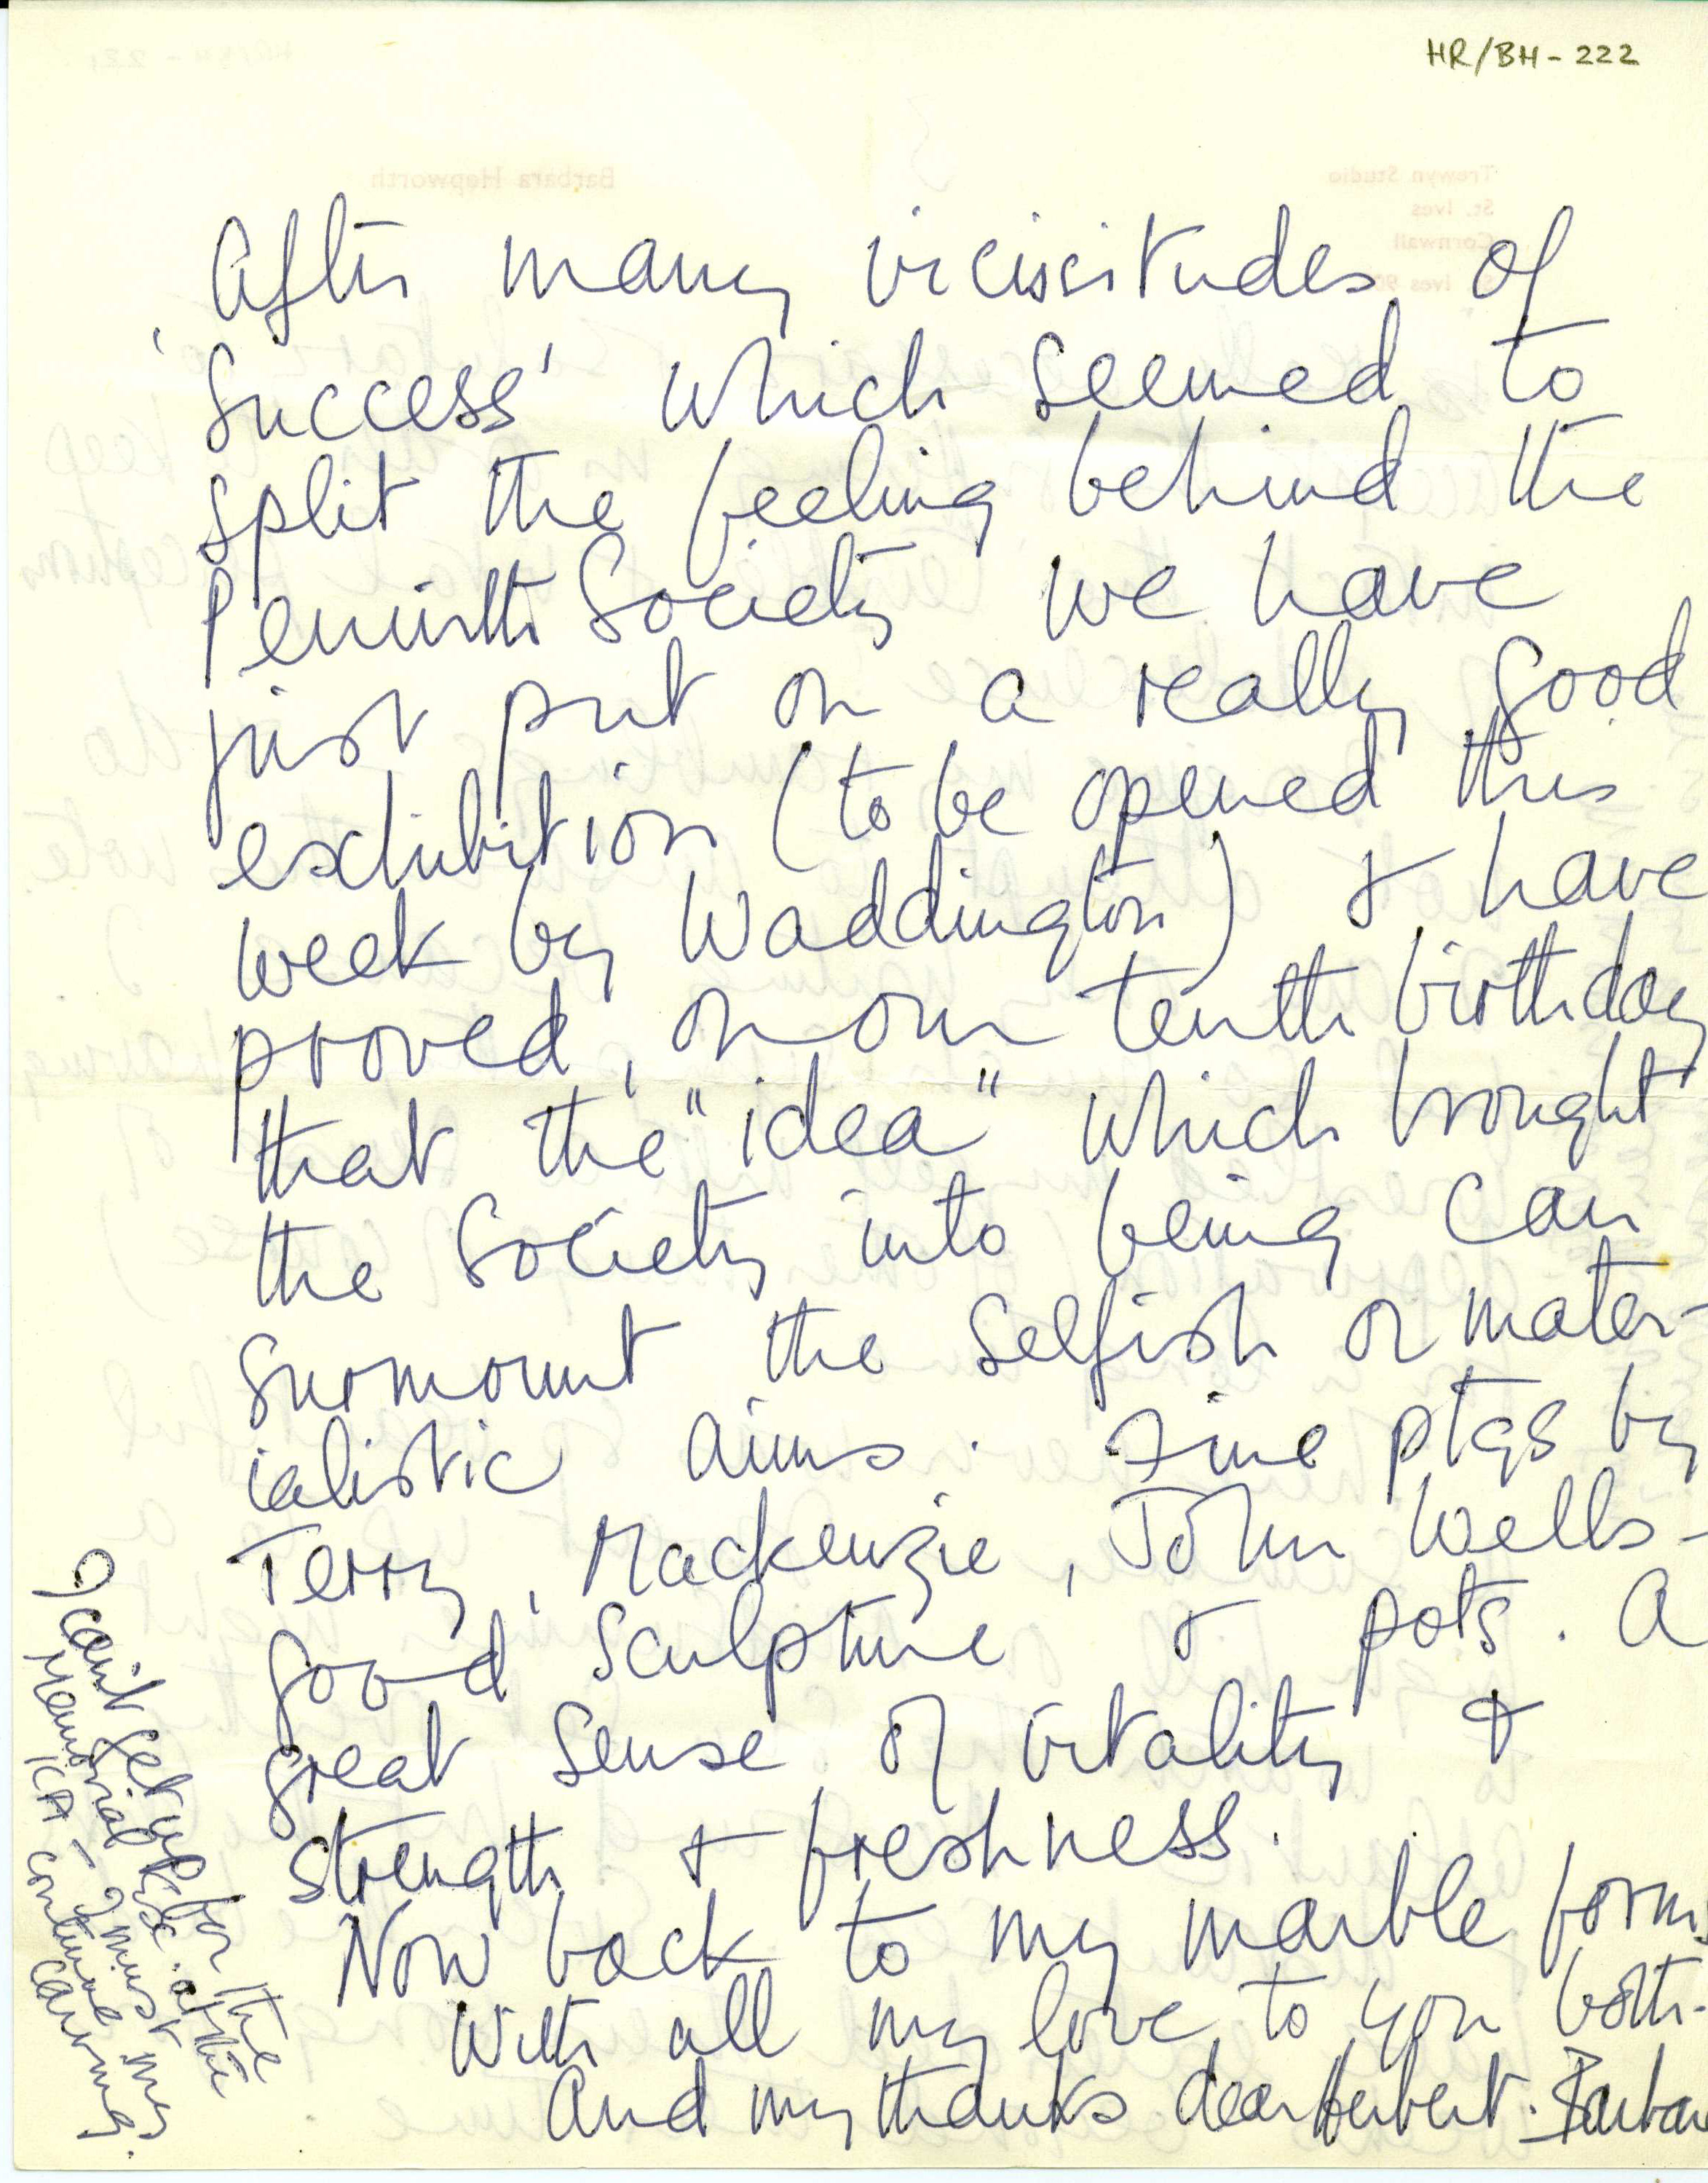 HR/BH - 222
After many vicissitudes of
'success' which seemed to
split the feeling behind the
Penwith Society we have
just put on a really good
exhibition (to be opened this
week by Waddington) & have
proved, on our tenth birthday
that the "idea" which brought
the Society into being can
surmount the selfish or mater-
ialistic aims. Fine ptgs by
Terry, Mackenzie, John Wells -
good sculpture & pots. A
great sense of vitality &
strength & freshness.
Now back to my marble forms
With all my love to you both.
And my thanks dear Herbert. Barbara
I can't get up for the
Memorial Disc. at the
ICA - I must
continue my
carving.
Barbara Hepworth
Trewyn Studio
St. Ives
Cornwall